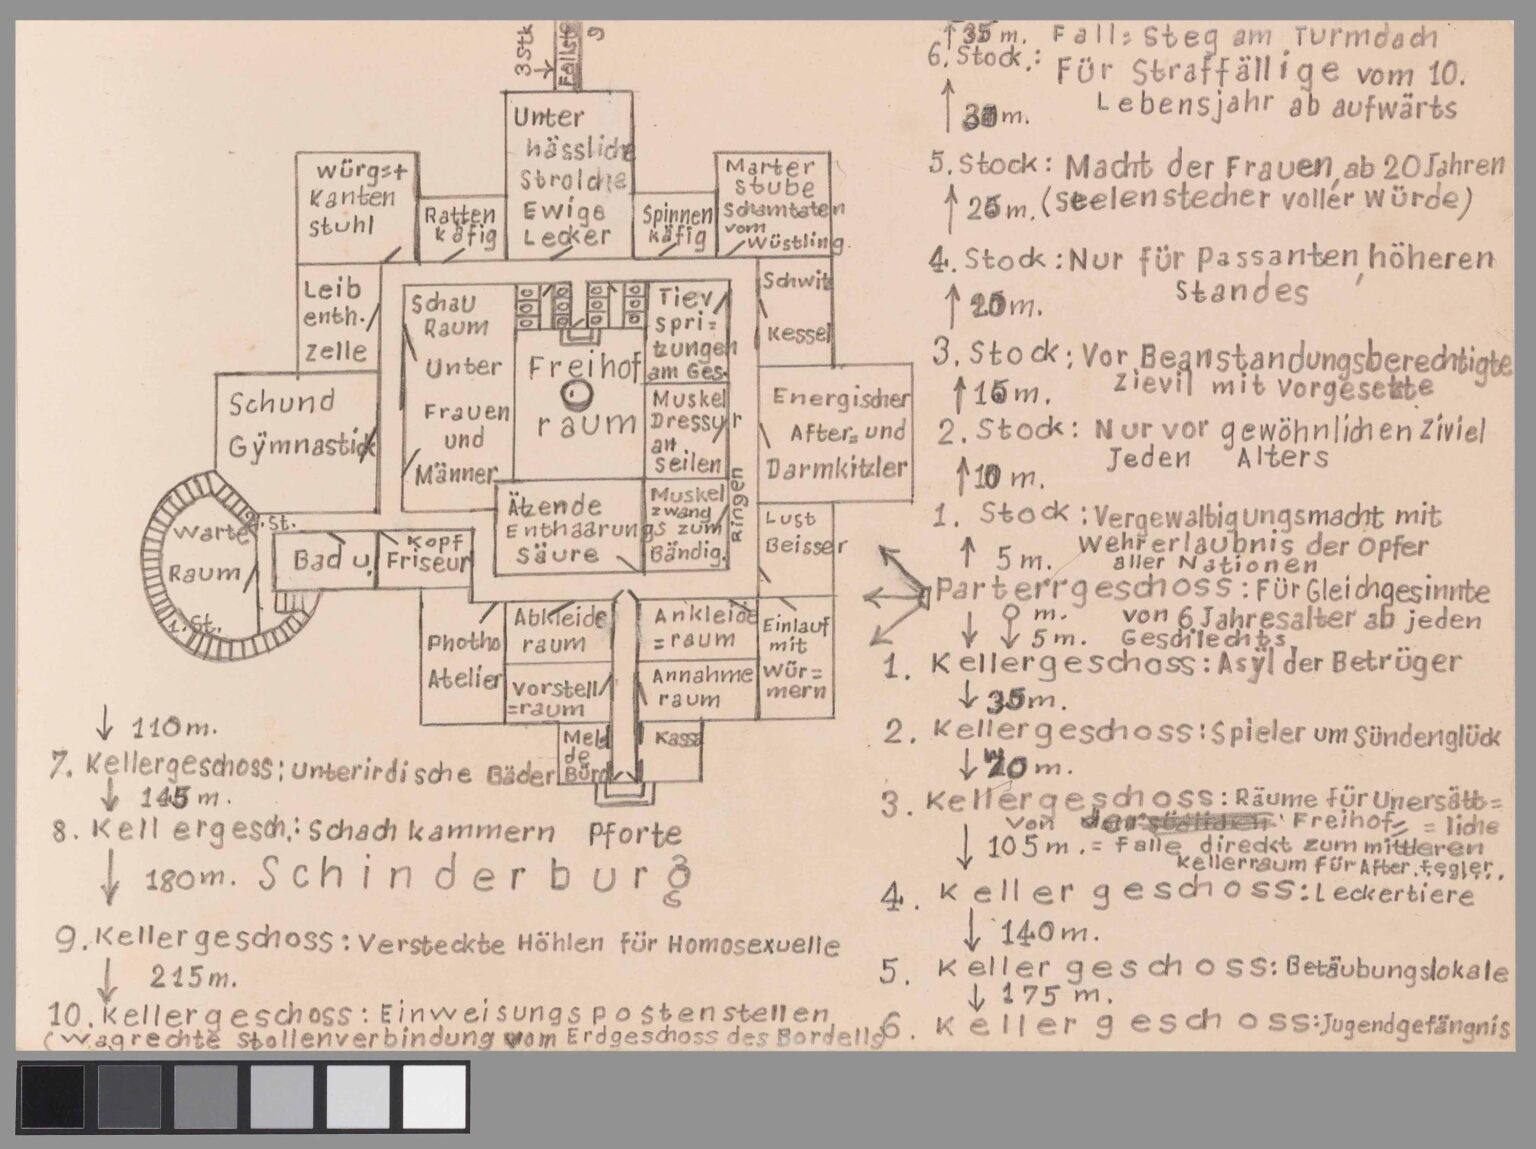 3Stk
Fallste
g
Unter
hässliche
Strolche
Ewige
Lecker
würgst
Kanten
stuhl
Ratten
käfig
Spinnen
käfig
Marter
Stube
Schamtaten
vom
Wüstling.
Leib
enth.
zelle
Schau
Raum
Unter
Frauen
und
Männer
Freihof
raum
Tiev
spri=
tzungen
am Ges.
Muskel
Dressur
an
Seilen
Muskel
zwang
zum
Bändig.
Ringen
Schwitz
Kessel
Energischer
After= und
Darmkitzler
Lust
Beisser
Schund
Gÿmnastick
Ätzende
Enthaarungs
säure
Warte
Raum
St.
St.
Bad u.
Kopf
Friseur
Photho
Atelier
Abkleide
raum
Vorstell
=raum
Ankleide
=raum
Annahme
raum
Einlauf
mit
Wür=
mern
Mel
de
Büro
Kassa
Pforte
Schinderburg
↓ 110m.
7. Kellergeschoss: unterirdische Bäder
↓ 145m.
8. Kellergesch.: Schachkammern
↓ 180m.
9. Kellergeschoss: Versteckte Höhlen für Homosexuelle
↓ 215m.
10. Kellergeschoss: Einweisungspostenstellen
(Wagrechte Stollenverbindung vom Erdgeschoss des Bordells
↑ 35 m. Fall= Steg am Turmdach
6. Stock.: Für Straffällige vom 10.
Lebensjahr ab aufwärts
↑ 30m.
5. Stock: Macht der Frauen, ab 20 Jahren
(Seelenstecher voller Würde)
↑ 25m.
4. Stock: Nur für Passanten, höheren
Standes
↑ 20m.
3. Stock: Vor Beanstandungsberechtigte
Zievil mit Vorgesetzte
↑ 15m.
2. Stock: Nur vor gewöhnlichen Ziviel
Jeden Alters
↑ 10m.
1. Stock: Vergewaltigungsmacht mit
Wehrerlaubnis der Opfer
aller Nationen
↑ 5m.
Parterrgeschoss: Für Gleichgesinnte
von 6 Jahresalter ab jeden
Geschlechts.
0 m.
↓ ↓ 5m.
1. Kellergeschoss: Asÿl der Betrüger
↓ 35m.
2. Kellergeschoss: Spieler um Sündenglück
↓ 70m.
3. Kellergeschoss: Räume für Unersätt=
=liche
von Freihof=
↓ 105m. = Falle direckt zum mittleren
Kellerraum für After.fegler.
4. Kellergeschoss: Leckertiere
↓ 140m.
5. Kellergeschoss: Betäubungslokale
↓ 175m.
6. Kellergeschoss: Jugendgefängnis